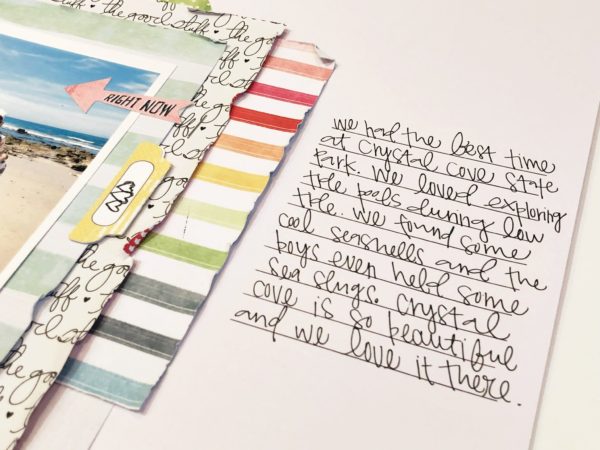 the good stuff
the good stuff
the good
RIGHT NOW
we had the best time
at Crystal Cove State
Park. We loved exploring
tide pools during low
tide. We found some
cool seashells and the
boys even held some
sea slugs. Crystal
cove is so beautiful
and we love it there.
the good
stuff
the good